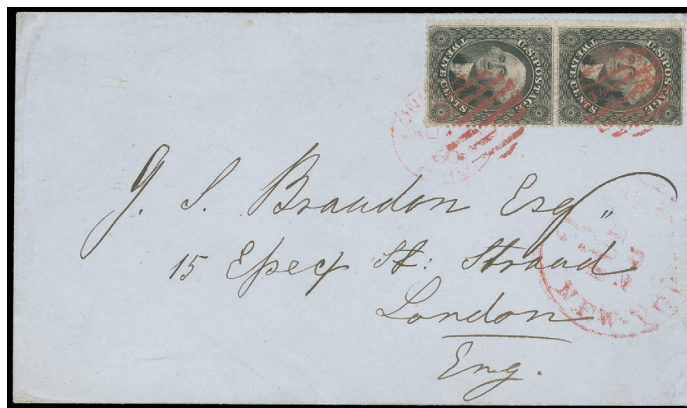 U.S. POSTAGE
TWELVE CENTS
U.S. POSTAGE
TWELVE CENTS
LON
J. S. Brandon Esq"
15 Essex St: Strand
London
Eng.
NEW-YORK